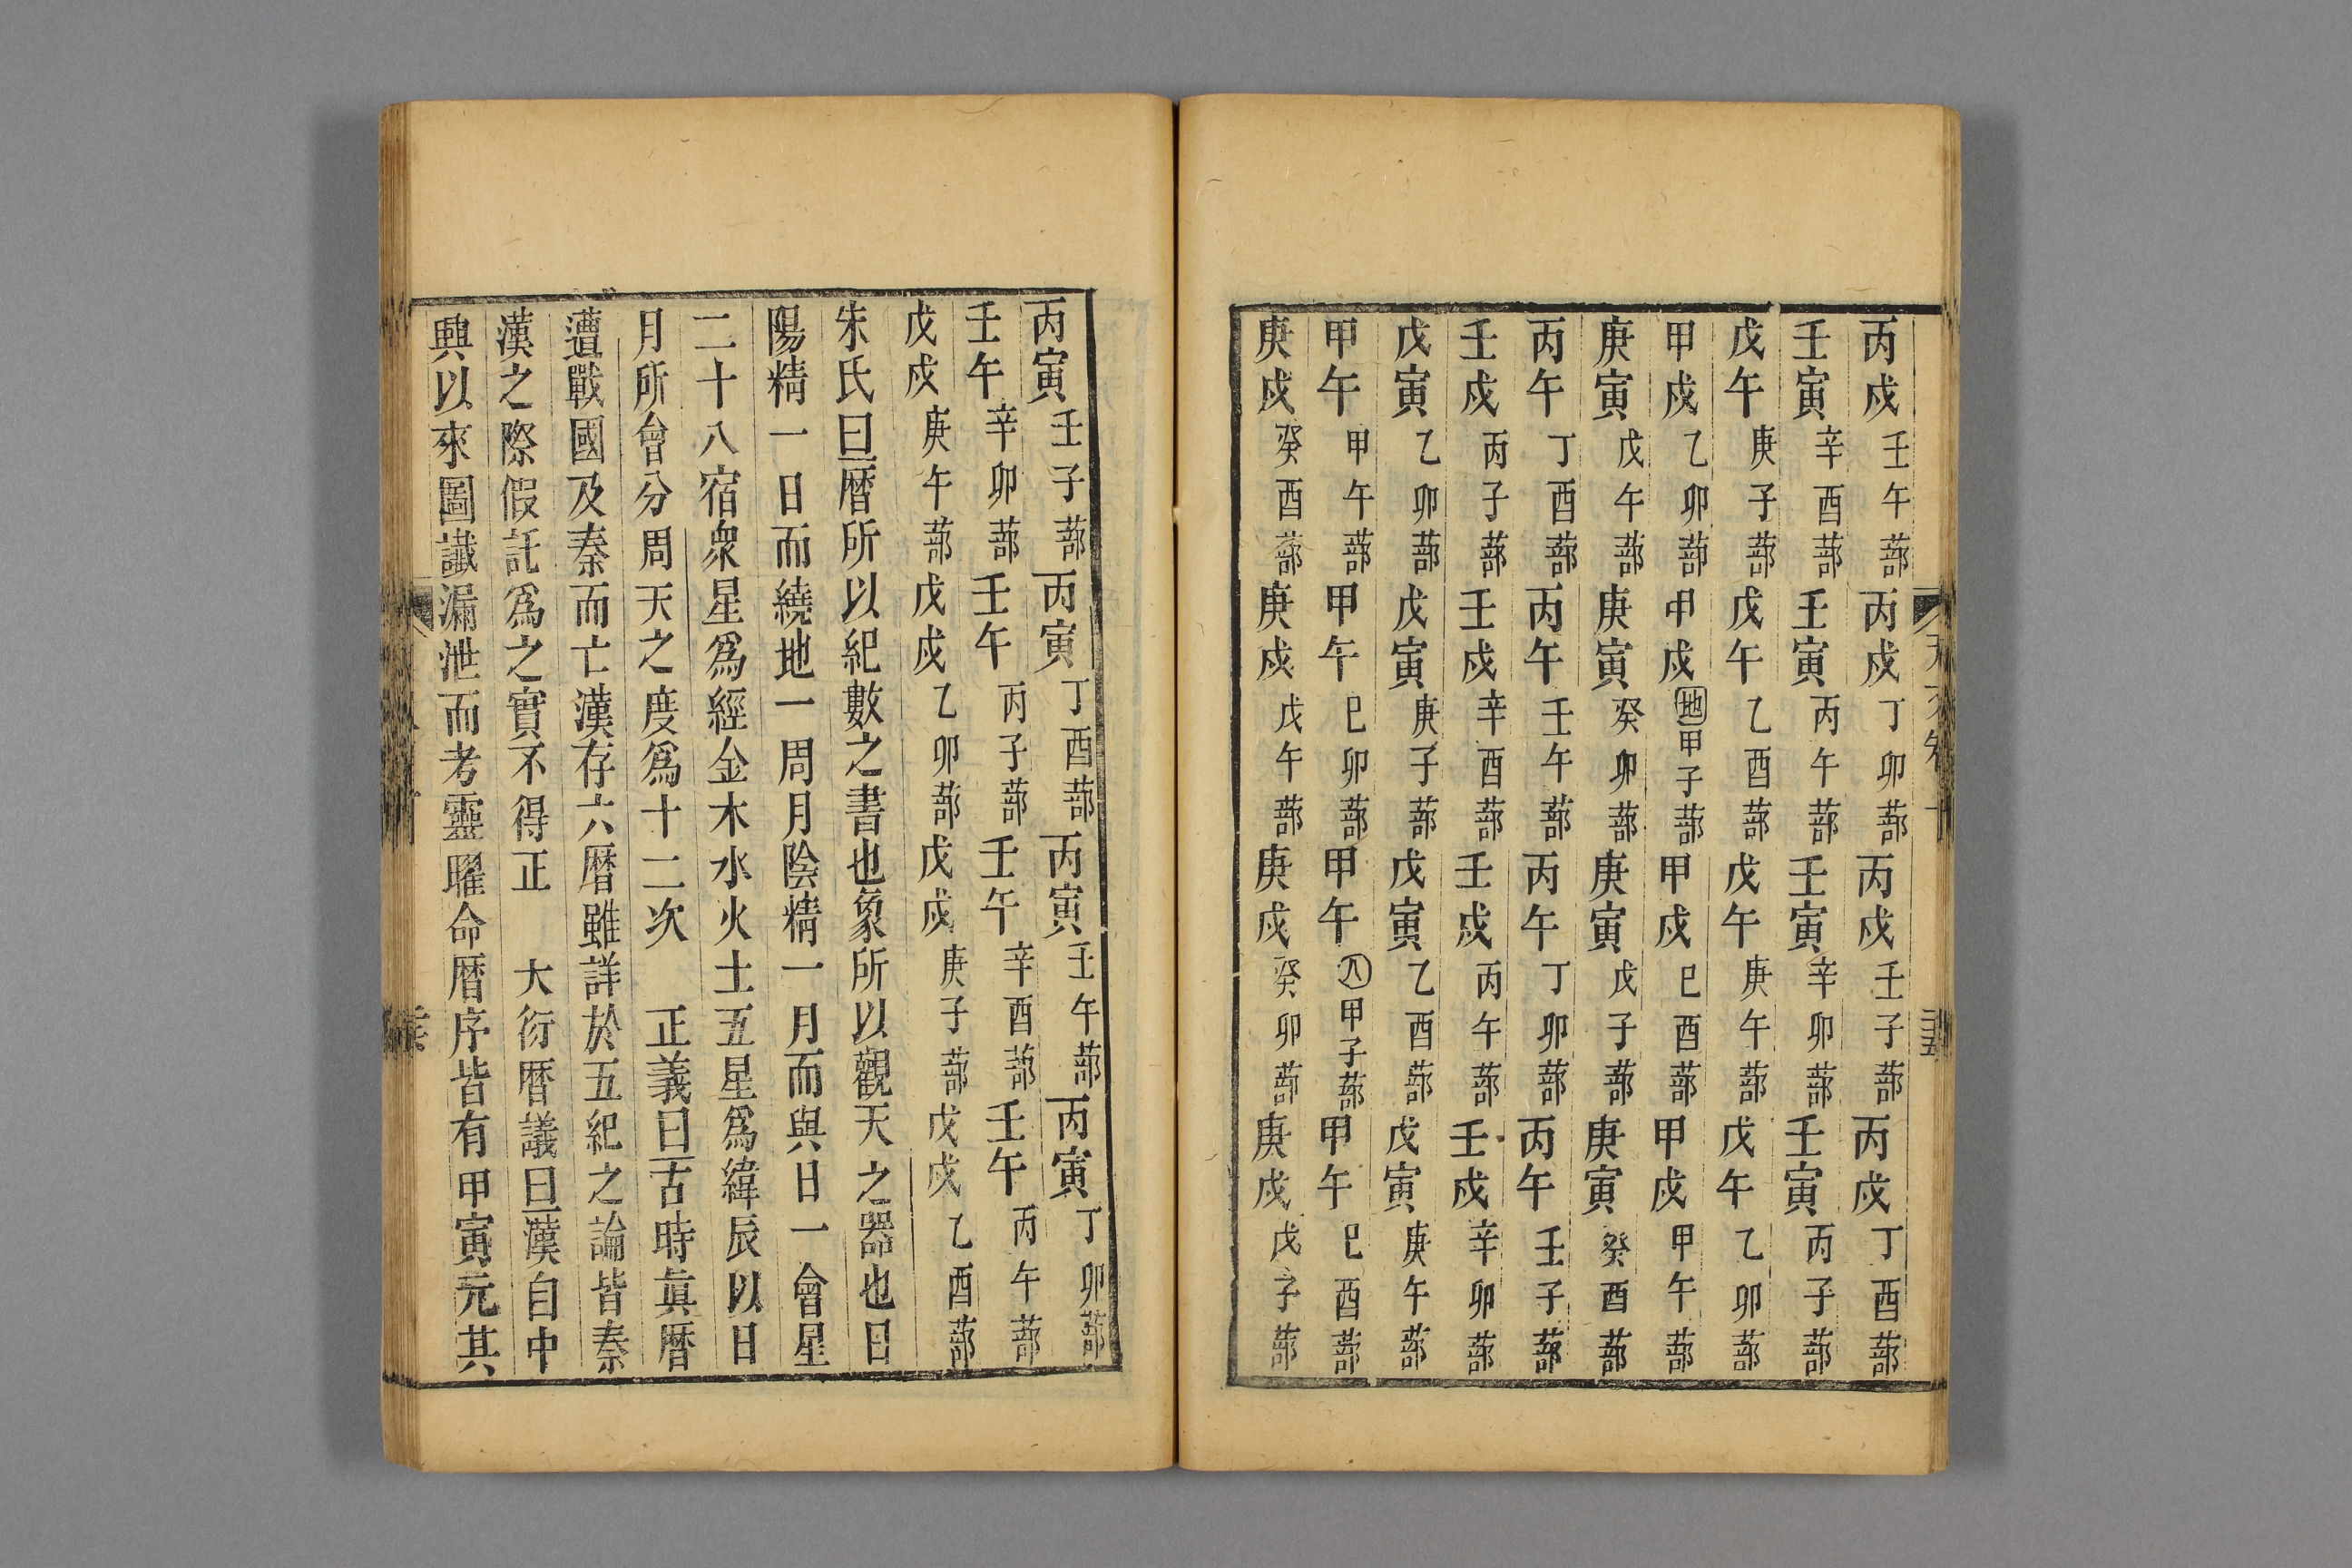 丙戌壬午蔀丙戌丁卯蔀丙戌壬子蔀丙戌丁酉蔀
壬寅辛酉蔀壬寅丙午蔀壬寅辛卯蔀壬寅丙子蔀
戊午庚子蔀戊午乙酉蔀戊午庚午蔀戊午乙卯蔀
甲戌乙卯蔀甲戌地甲子蔀甲戌己酉蔀甲戌甲午蔀
庚寅戊午蔀庚寅癸卯蔀庚寅戊子蔀庚寅癸酉蔀
丙午丁酉蔀丙午壬午蔀丙午丁卯蔀丙午壬子蔀
壬戌丙子蔀壬戌辛酉蔀壬戌丙午蔀壬戌辛卯蔀
戊寅乙卯蔀戊寅庚子蔀戊寅乙酉蔀戊寅庚午蔀
甲午甲午蔀甲午巳卯蔀甲午人甲子蔀甲午巳酉蔀
庚戌癸酉蔀庚戌戊午蔀庚戌癸卯蔀庚戌戊子蔀
丙寅壬子蔀丙寅丁酉蔀丙寅壬午蔀丙寅丁卯蔀
壬午辛卯蔀壬午丙子蔀壬午辛酉蔀壬午丙午蔀
戊戌庚午蔀戊戌乙卯蔀戊戌庚子蔀戊戌乙酉蔀
朱氏曰曆所以紀數之書也象所以觀天之器也日
陽精一日而繞地一周月陰精一月而與日一會星
二十八宿衆星爲經金木水火土五星爲緯辰以日
月所會分周天之度爲十二次　正義曰古時眞曆
遭戰國及秦而亡漢存六曆雖詳於五紀之論皆秦
漢之際假託爲之實不得正　大衍曆議曰漢自中
興以來圖讖漏泄而考靈曜命曆序皆有甲寅元其